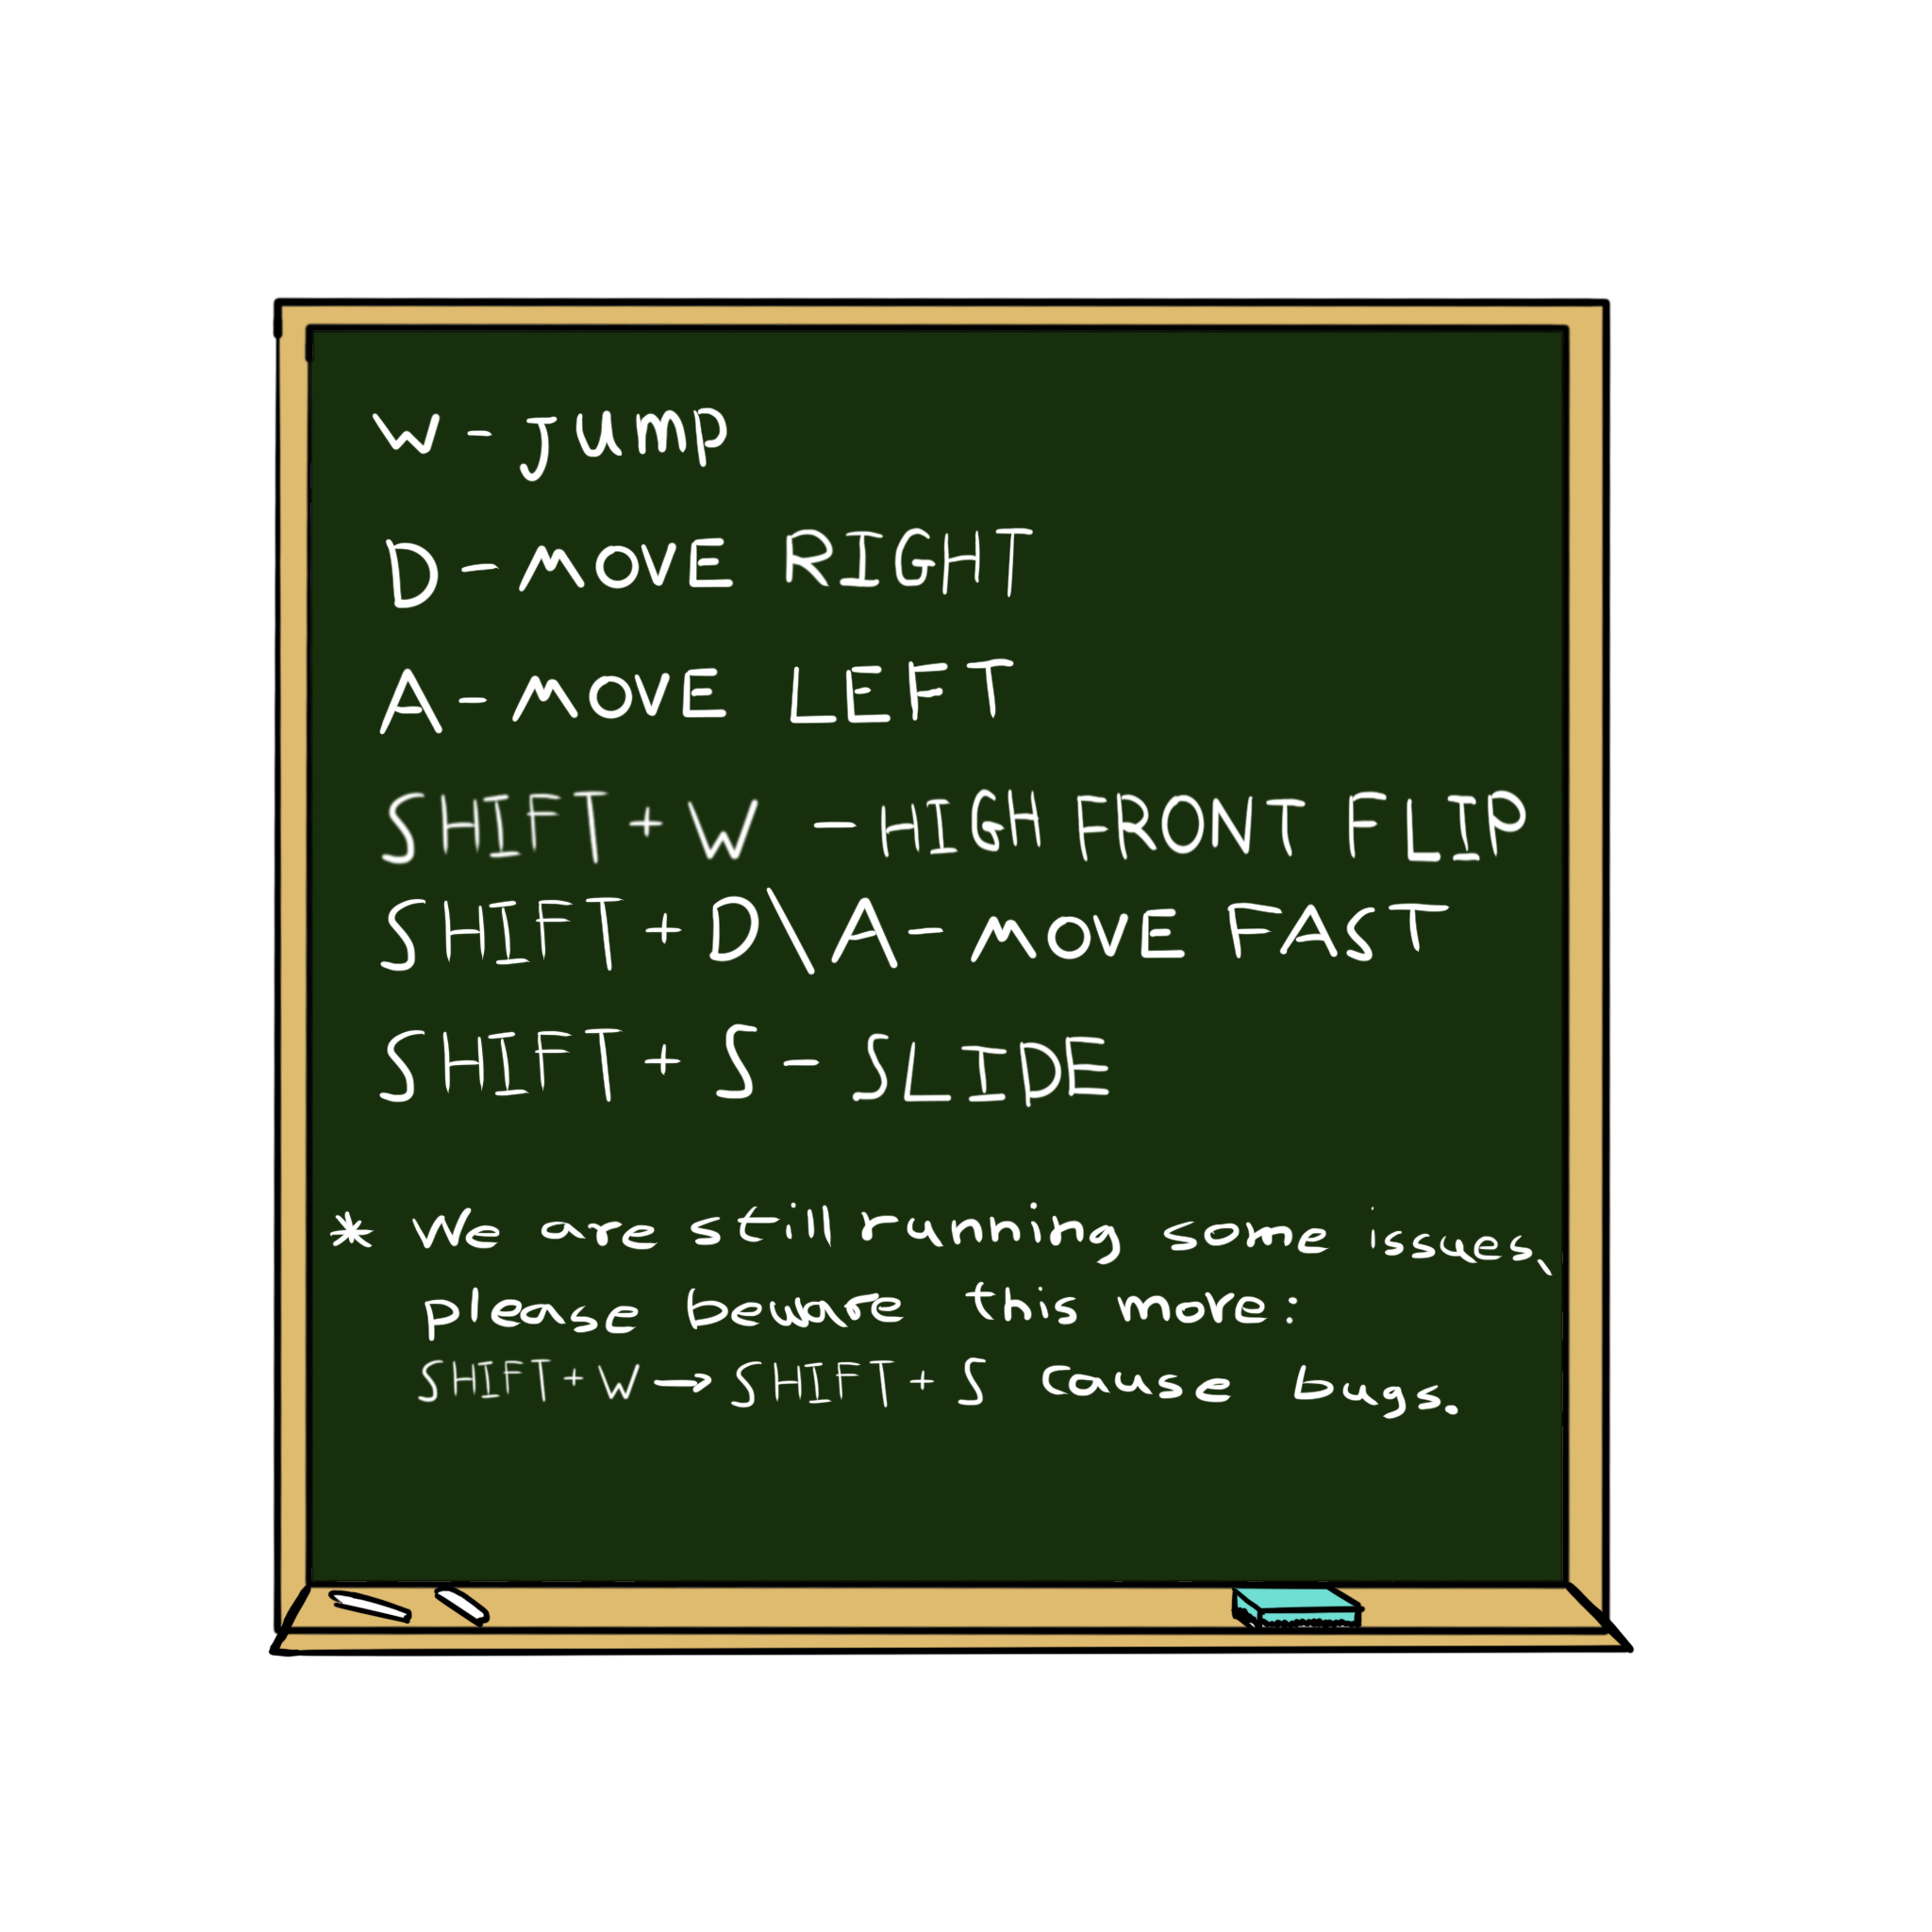 W - jump
D - MOVE RIGHT
A - MOVE LEFT
SHIFT + W - HIGH FRONT FLIP
SHIFT + D\A - MOVE FAST
SHIFT + S - SLIDE
* We are still running some issues,
please beware this more:
SHIFT + W → SHIFT + S cause bugs.